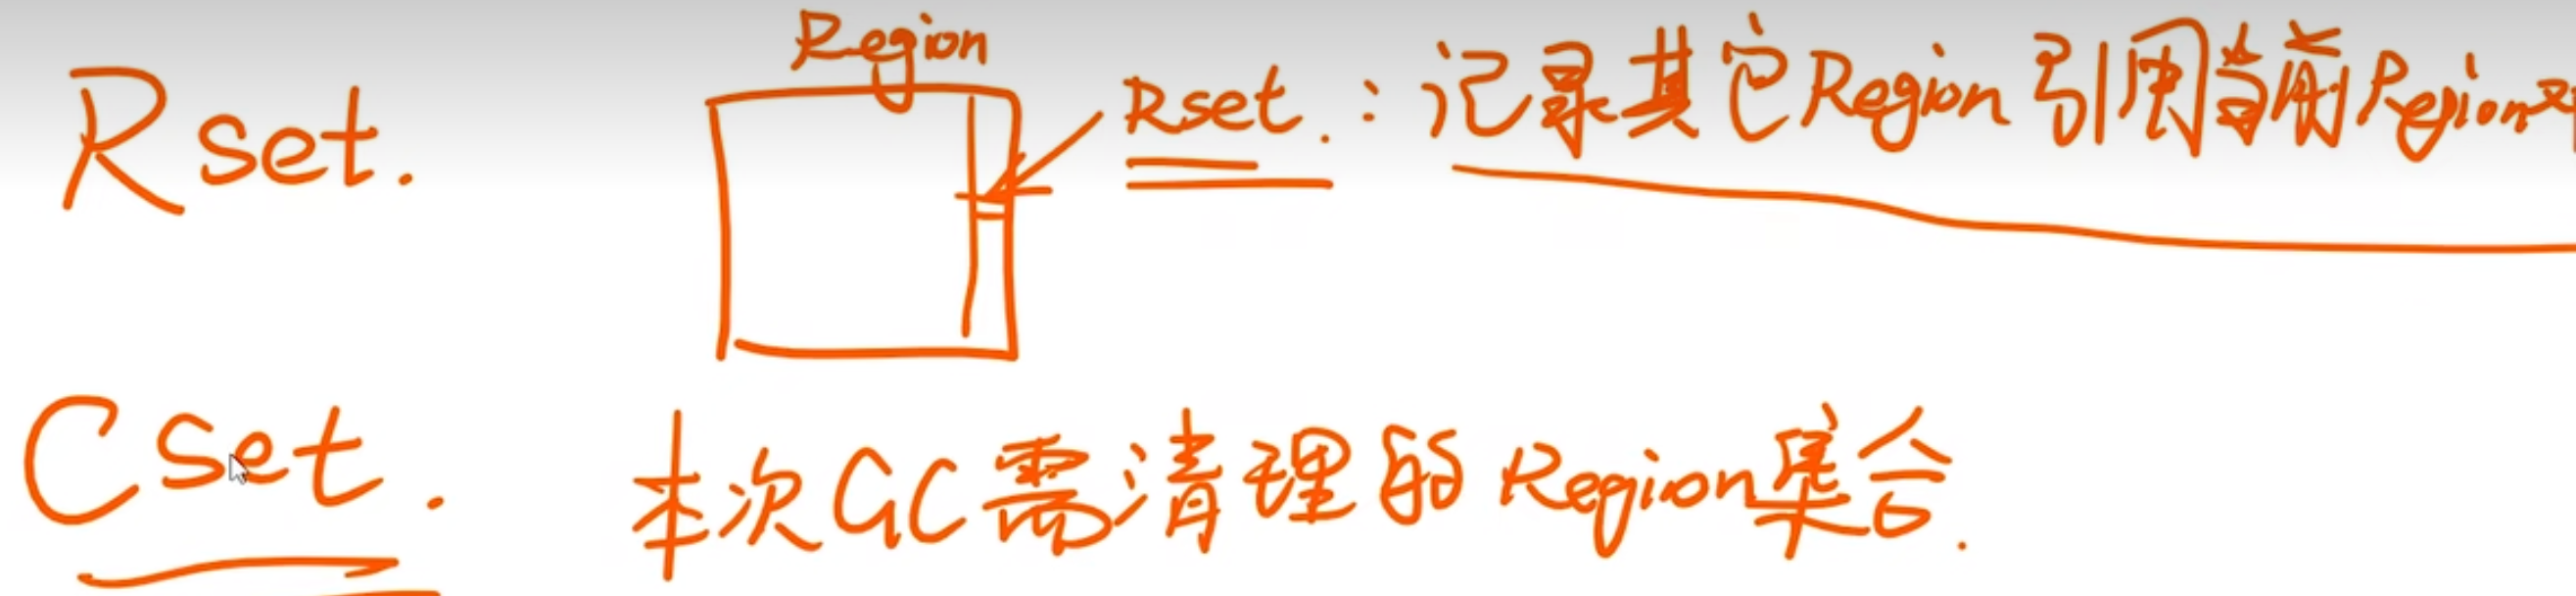 Region
Rset.
Rset.：记录其它Region引用当前Region
Cset.
本次GC需清理的Region集合.